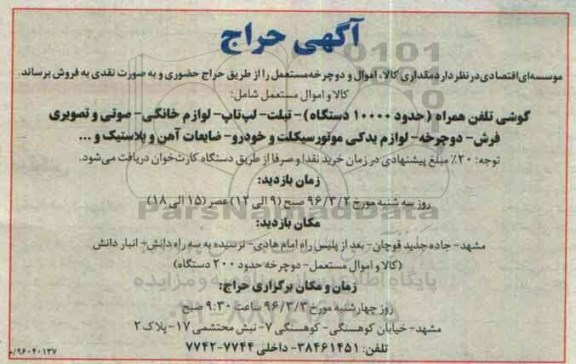 آگهی حراج
موسسه‌ای اقتصادی در نظر دارد مقداری کالا، اموال و دوچرخه مستعمل را از طریق حراج حضوری و به صورت نقدی به فروش برساند.
کالا و اموال مستعمل شامل:
گوشی تلفن همراه (حدود ۱۰۰۰۰ دستگاه) - تبلت- لپ‌تاپ- لوازم خانگی- صوتی و تصویری
فرش- دوچرخه- لوازم یدکی موتورسیکلت و خودرو- ضایعات آهن و پلاستیک و ...
توجه: ۲۰٪ مبلغ پیشنهادی در زمان خرید نقدا و صرفا از طریق دستگاه کارت‌خوان دریافت می‌شود.
زمان بازدید:
روز سه شنبه مورخ ۹۶/۳/۲ صبح (۹ الی ۱۲) عصر (۱۵ الی ۱۸)
ParsNamadData
مکان بازدید:
مشهد- جاده جدید قوچان- بعد از پلیس راه امام هادی- نرسیده به سه راه دانش- انبار دانش
(کالا و اموال مستعمل- دوچرخه حدود ۲۰۰ دستگاه)
زمان و مکان برگزاری حراج:
روز چهارشنبه مورخ ۹۶/۳/۳ ساعت ۹:۳۰ صبح
مشهد- خیابان کوهسنگی- کوهسنگی ۷- نبش محتشمی ۱۷- پلاک ۲
تلفن: ۳۸۴۶۱۴۵۱- داخلی ۷۷۴۴-۷۷۴۲
۹۶۰۴۰۱۳۷/م